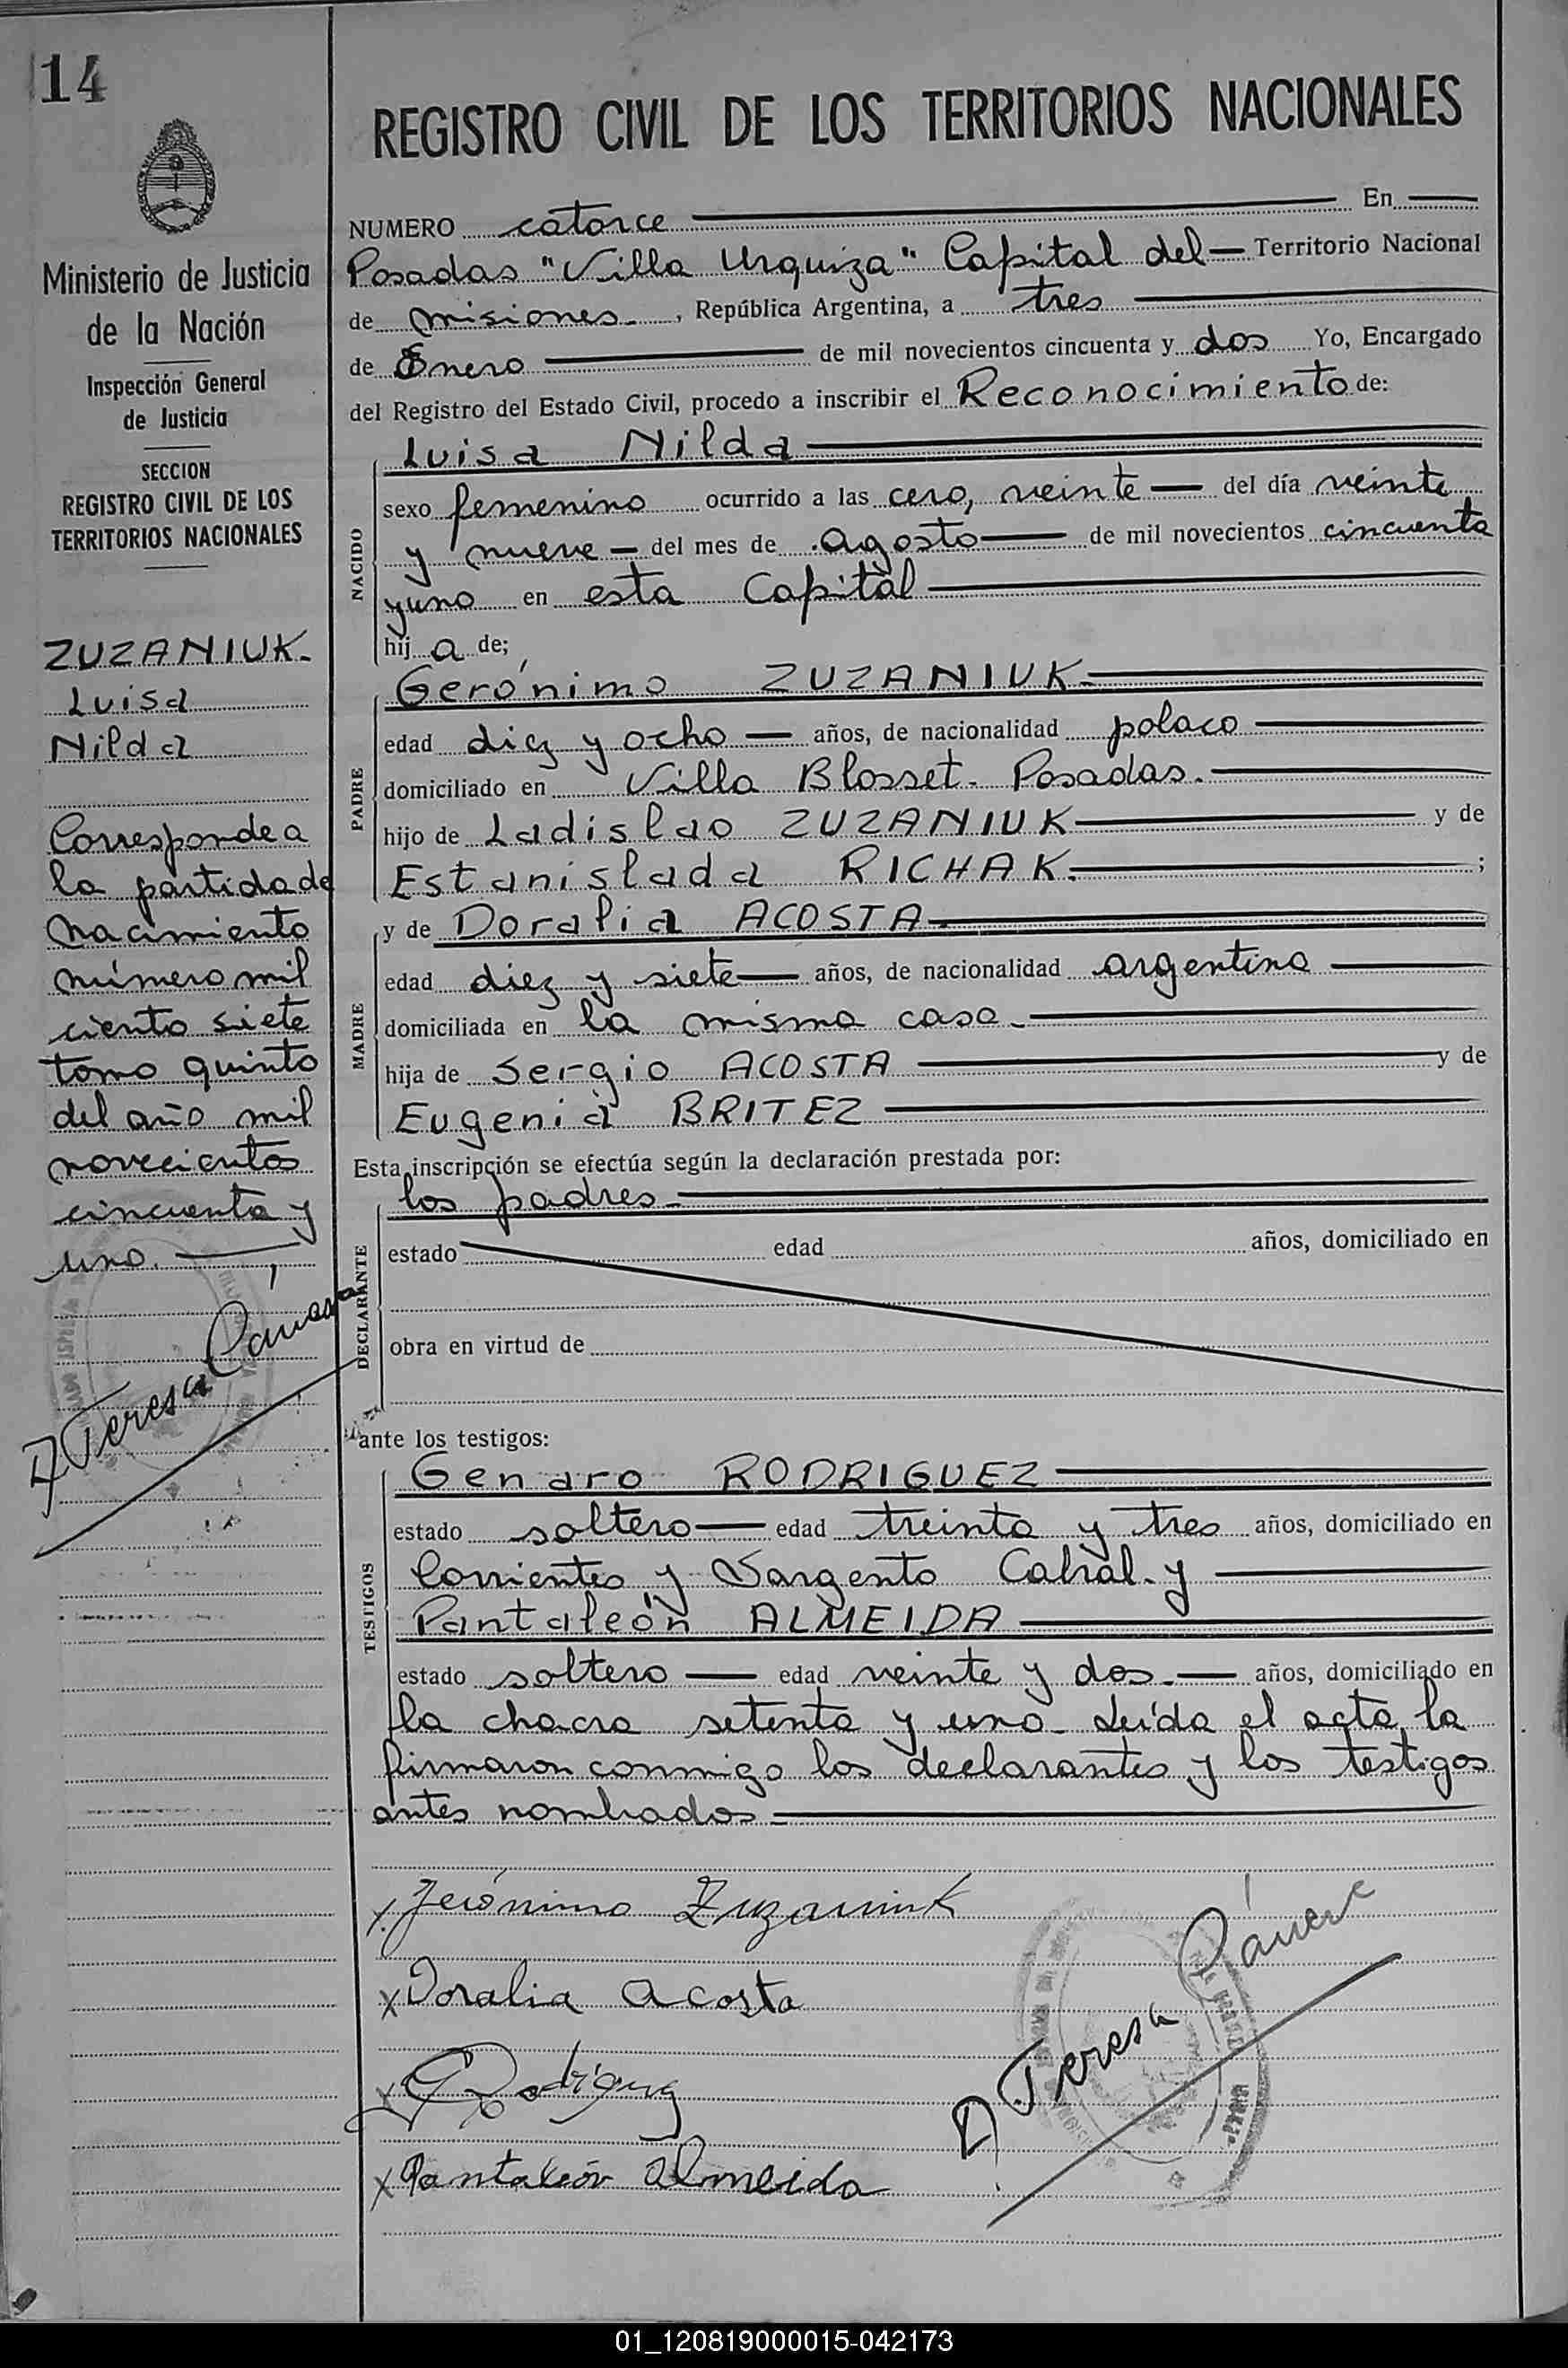 14
Ministerio de Justicia
de la Nación
Inspección General
de Justicia
SECCION
REGISTRO CIVIL DE LOS
TERRITORIOS NACIONALES
ZUZANIUK.
Luisa
Nilda
Corresponde a
la partida de
nacimiento
número mil
ciento siete
tomo quinto
del año mil
novecientos
cincuenta y
uno.
REGISTRO CIVIL DE LOS TERRITORIOS NACIONALES
NUMERO catorce En
Posadas "Villa Urquiza" Capital del Territorio Nacional
de Misiones, República Argentina, a tres
de Enero de mil novecientos cincuenta y dos Yo, Encargado
del Registro del Estado Civil, procedo a inscribir el Reconocimiento de:
NACIDO
Luisa Nilda
sexo femenino ocurrido a las cero, veinte del día veinte
y nueve del mes de agosto de mil novecientos cincuenta
y uno en esta Capital
hij a de;
PADRE
Gerónimo ZUZANIUK
edad diez y ocho años, de nacionalidad polaco
domiciliado en Villa Blosset. Posadas.
hijo de Ladislao ZUZANIUK y de
Estanislada RICHAK. ;
MADRE
y de Doralia ACOSTA
edad diez y siete años, de nacionalidad argentina
domiciliada en la misma casa.
hija de Sergio ACOSTA y de
Eugenia BRITEZ
Esta inscripción se efectúa según la declaración prestada por:
DECLARANTE
los padres
estado edad años, domiciliado en
obra en virtud de
ante los testigos:
TESTIGOS
Genaro RODRIGUEZ
estado soltero edad treinta y tres años, domiciliado en
Corrientes y Sargento Cabral. y
Pantaleón ALMEIDA
estado soltero edad veinte y dos. años, domiciliado en
la chacra setenta y uno. Leída el acta, la
firmaron conmigo los declarantes y los testigos
antes nombrados
x Jerónimo Zuzaniuk
x Doralia Acosta
x G Rodriguez
x Pantaleón Almeida
Teresa
01_120819000015-042173